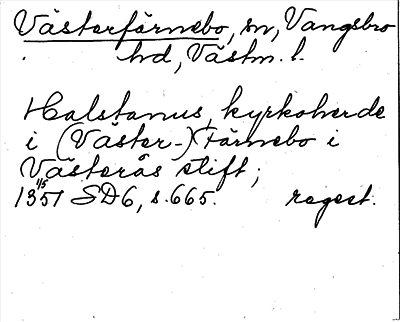 Västerfärnebo, sn, Vangsbro
hd, Västm. l.
Halstanus, kyrkoherde
i (Väster-)Färnebo i
Västerås stift;
1/5
1351 SD6, s. 665. regest.